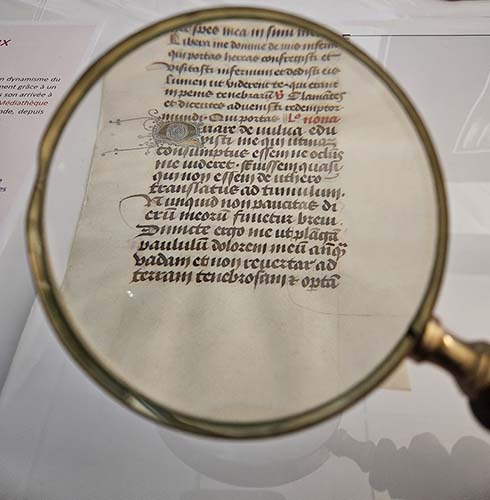 ex
n dynamisme du
ment grâce à un
son arrivée à
Médiathèque
nde, depuis
spes mea in sinu meo
Libera me domine de vijs inferni
qui portas hereas confregisti et
visitasti infernum et dedisti eis
lumen ut viderent te qui erant
in penis tenebrarū V Clamantes
et dicentes advenisti redemptor
Qui portas Lc nona
Quare de vulva edu
xisti me qui utinam
consumptus essem ne oculus
me videret fuissem quasi
qui non essem de uthero
translatus ad tumulum.
Nunquid non paucitas di
erū meorū finietur brevi.
Dimitte ergo me ut plāgā
paululū dolorem meū anq̄
vadam et non revertar ad
terram tenebrosam et optā